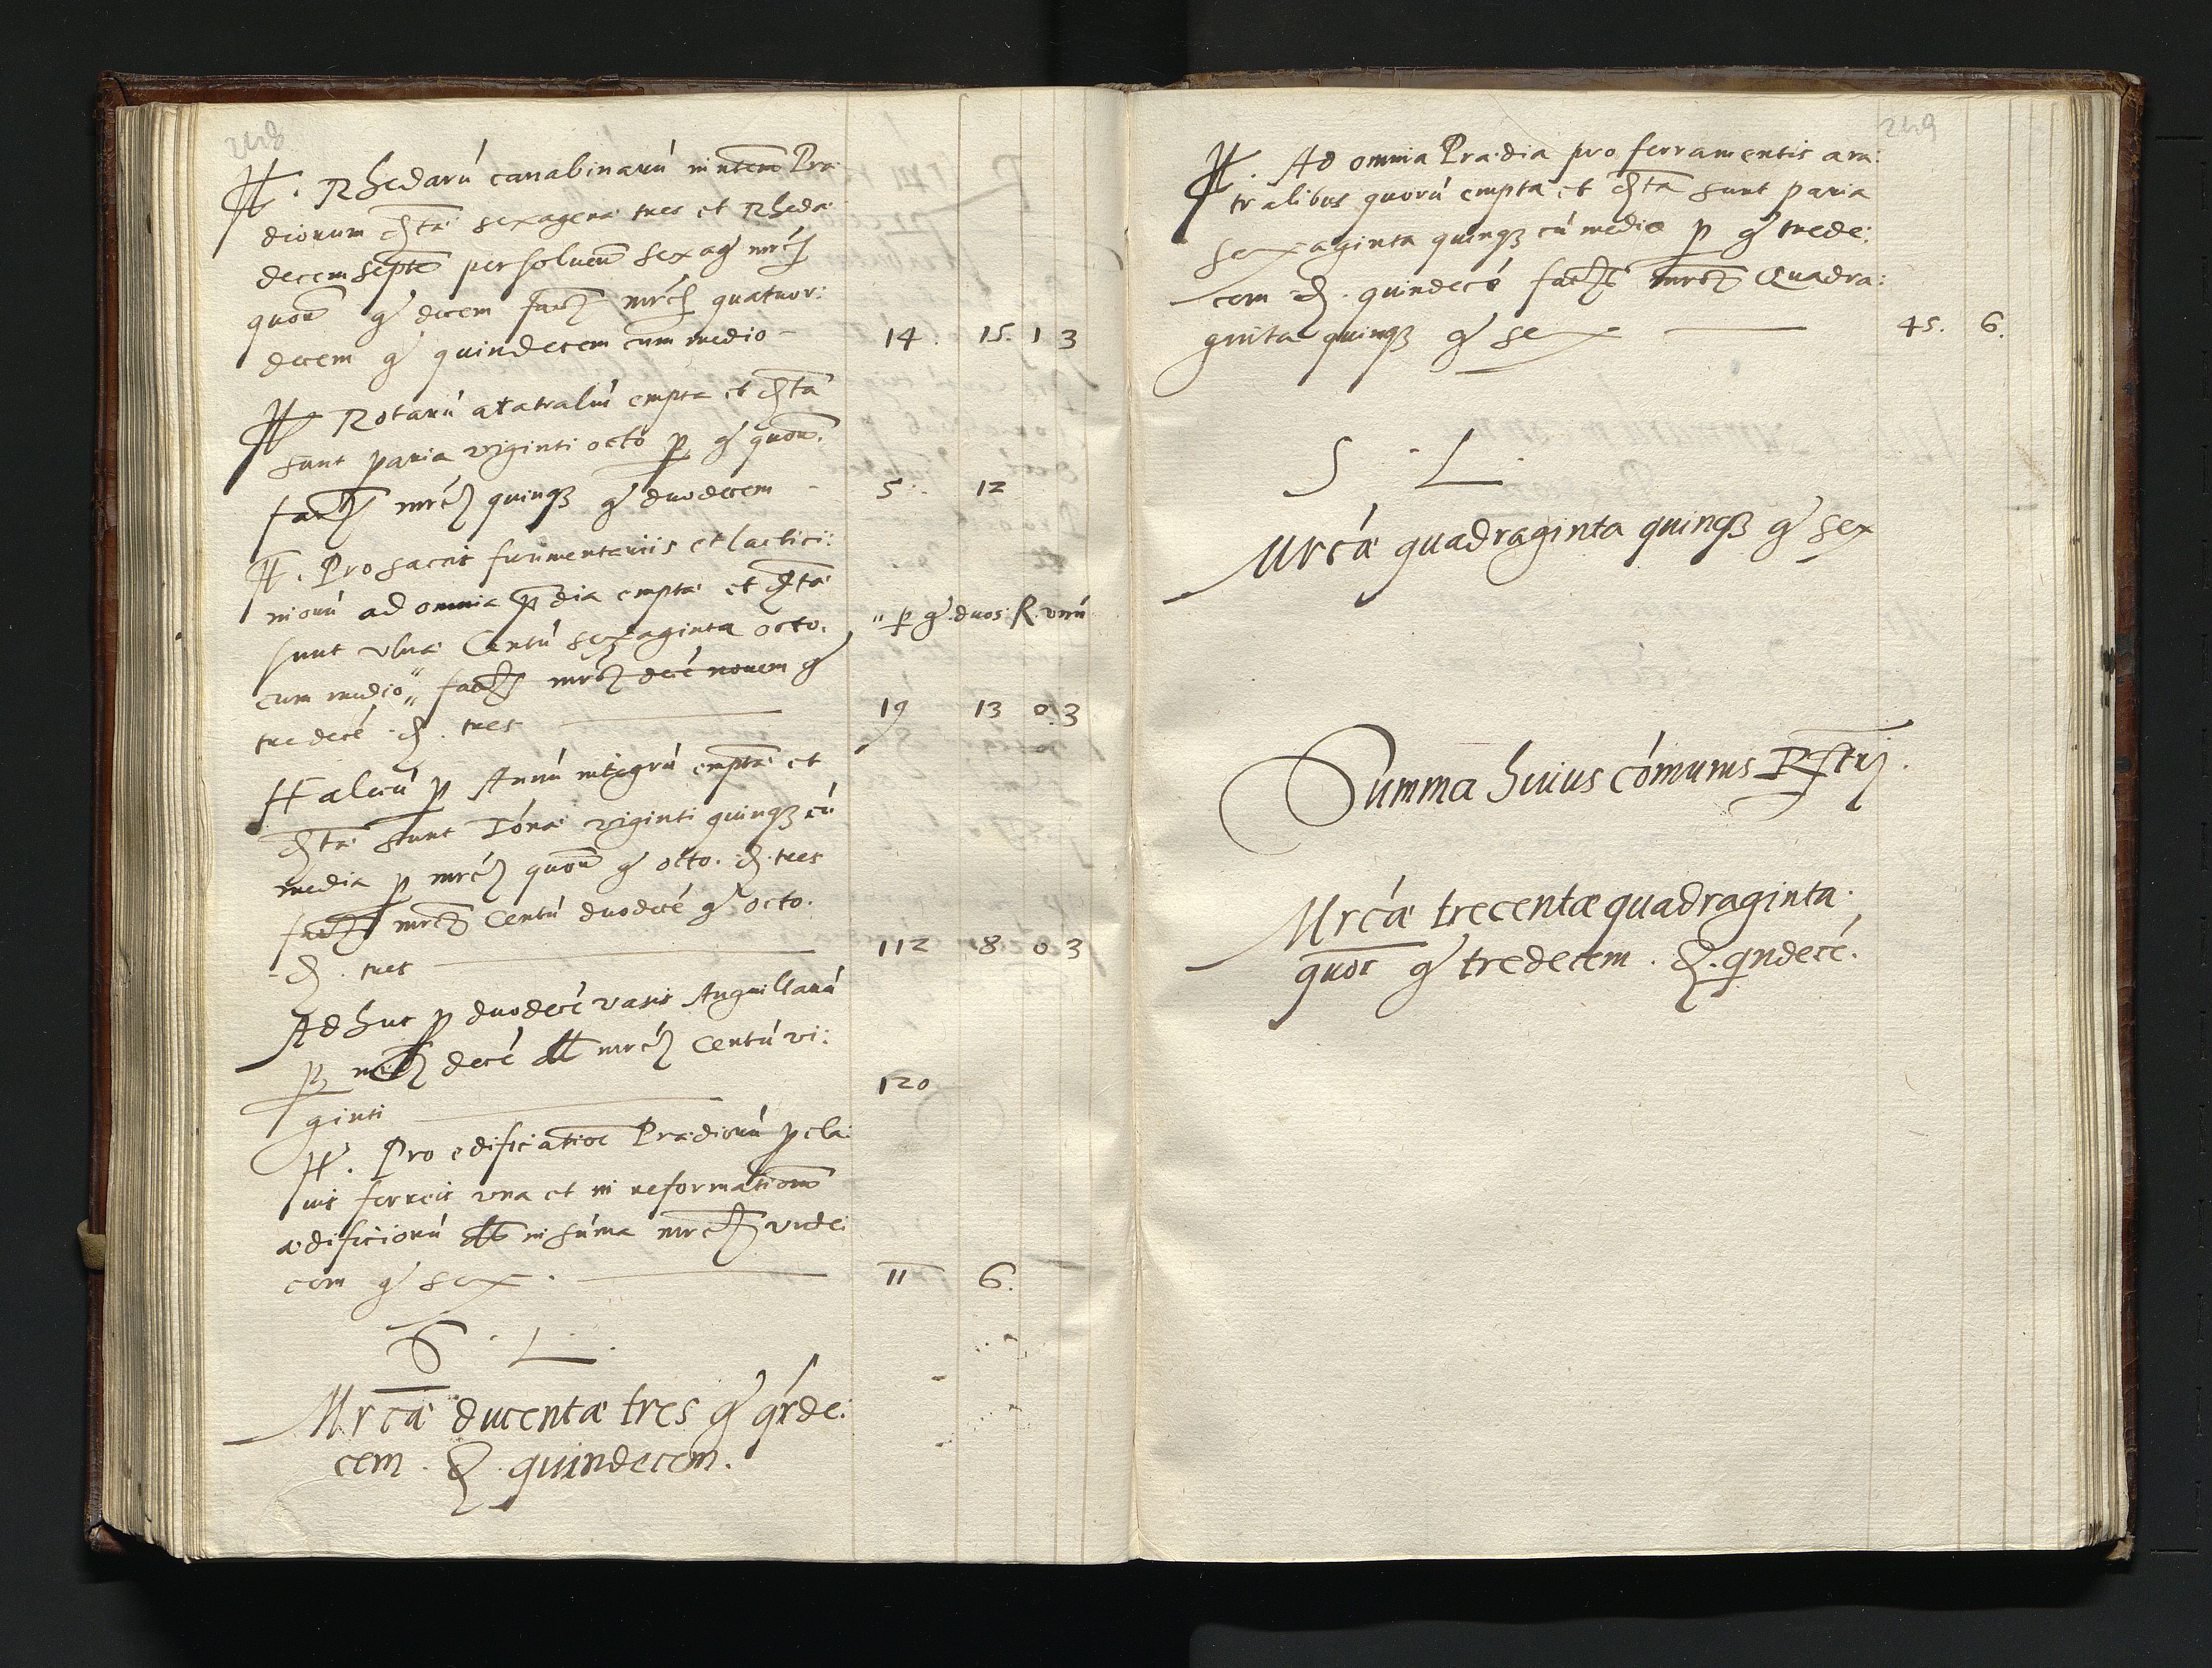 248
It. Rhedarú canabinarú in utem Præ:
diorum sexagenæ tres et Rhedæ
decem septē persolvēn sexag mrc
quor g decem fac mrc quatuor:
decem g quindecem cum medio – 14. 15. 1 3
It Rotarú aratraliú empta et
sunt paria viginti octo p g quor.
fac mrc quinq g duodecem – 5. 12
It. Pro saccis frumentariis et lactici:
niorú ad omnia p̄dia emptæ et
sunt ulnæ Centú sexaginta octo. " p g duos R. vnú
cum medio" fac mrc decé novem g
tredecé . tres 19 13 0. 3
Halecú p Annú integrú emptæ et
sunt Tónæ viginti quinq cú
media p mrc quor g octo. tres
fac mrc Centú duodecé g octo.
tres 112 8 0 3
Adhuc p duodecé vasis Anguillarú
p mrc decé mrc Centú vi:
ginti 120
It. Pro edificatioe Prædiorú p cla:
vis ferreis una et in reformationē
ædificiorú in súma mrc unde:
cem g sex. 11 6.
S. L.
Mrcæ ducentæ tres g qrde:
cem . quindecem.
249
It. Ad omnia Prædia pro ferramentis ara:
tralibus quorú empta et sunt paria
sexaginta quinq cú medio p g trede:
cem . quindecé fac mrc Quadra:
ginta quinq g sex 45. 6.
S. L.
Mrcæ quadraginta quinq g sex
Summa huius cómunis Rstri.
Mrcæ trecentæ quadraginta
quor g tredecem . qndecé.